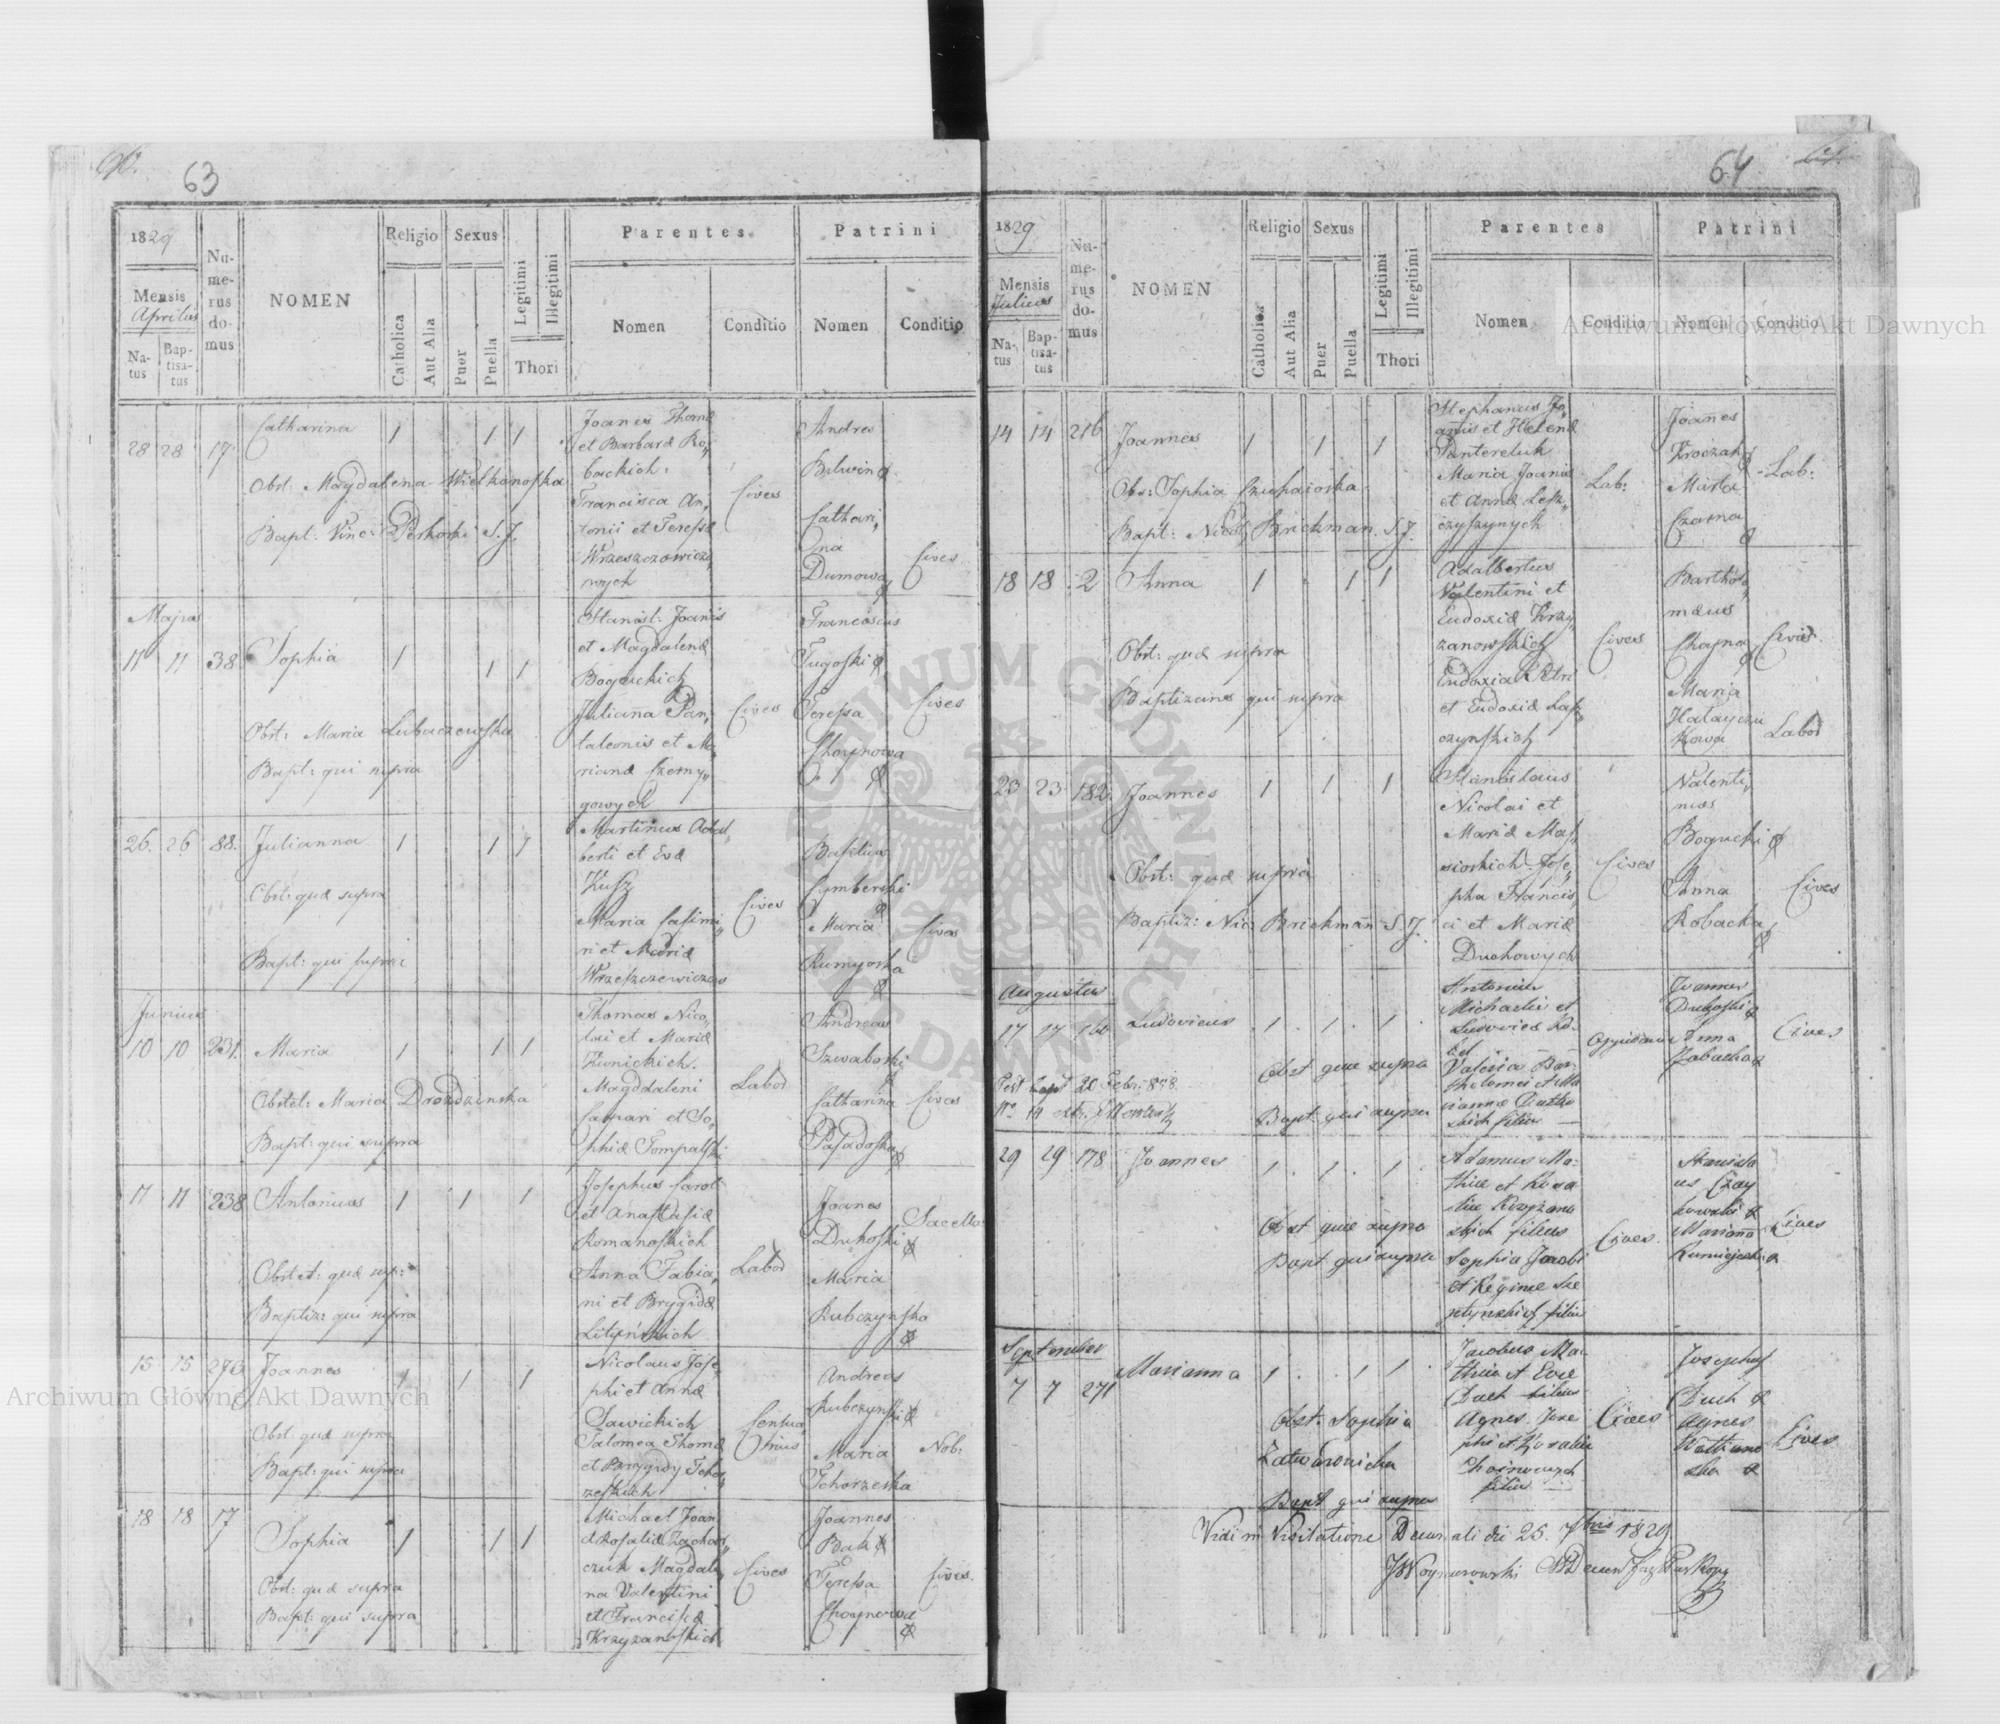 63
1829
Mensis
Aprilis
Na-
tus
Bap-
tisa-
tus
Nu-
me-
rus
do-
mus
NOMEN
Religio
Catholica
Aut Alia
Sexus
Puer
Puella
Legitimi
Illegitimi
Thori
Parentes
Nomen
Conditio
Patrini
Nomen
Conditio
28 28 17
Catharina
1 1 1
Obst: Magdalena Wielkanoska
Bapt: Vinc: Perkoski S.J.
Joanes Thomæ
et Barbaræ Ro„
backich.
Francisca An„
tonii et Teressæ
Wrzeszczowicze„
wych
Cives
Andres
Bilwin
Cathari„
na
Dumowa
Cives
Majus
11 11 38
Sophia
1 1 1
Obst: Maria Lubaczewska
Bapt: qui supra
Stanisl: Joanis
et Magdalenæ
Boguckich
Julianna Pan„
taleonis et Ma„
rianæ Czerny„
gowych
Cives
Franciscus
Tugoski
Teressa
Choynowa
Cives
26. 26 88.
Julianna
1 1 1
Obst: quæ supra
Bapt: qui supra
Martinus Adal„
berti et Evæ
Kusz
Maria Casimi„
ri et Mariæ
Wrzeszczewiczos
Cives
Basilius
Cymberski
Maria
Rumyoska
Cives
Junius
10 10 231.
Maria
1 1 1
Obstet: Maria Drozdzinska
Bapt: qui supra
Thomas Nico„
lai et Mariæ
Kunickich.
Magdaleni
Caspari et So„
phiæ Tompalski
Labor
Andreas
Szwaboski
Catharina
Posadoska
Cives
11 11 238
Antonius
1 1 1
Obstet: quæ sup:
Baptiz: qui supra
Josephus Caroli
et Anastasiæ
Romanoskich
Anna Fabia„
ni et Brygidæ
Lityńskich
Labor
Joanes
Dukoski
Maria
Rubczynska
Sacello:
15 15 276
Joannes
1 1 1
Obst quæ supra
Bapt: qui supra
Nicolaus Jose„
phi et Annæ
Sawickich
Salomea Thomæ
et Brygidy Tcho„
rzeskich
Andreas
Rubczynski
Maria
Tchorzeska
Nob:
18 18 17
Sophia
1 1 1
Obst: quæ supra
Bapt: qui supra
Michael Joan
et Rosaliæ Zachar„
czuk Magdale„
na Valentini
et Franciscæ
Krzyzanoskich
Cives
Joannes
Bak
Teressa
Choynowa
Cives.
64
1829
Mensis
Julius
Na-
tus
Bap-
tisa-
tus
Nu-
me-
rus
do-
mus
NOMEN
Religio
Catholica
Aut Alia
Sexus
Puer
Puella
Legitimi
Illegitimi
Thori
Parentes
Nomen
Conditio
Patrini
Nomen
Conditio
14 14 216
Joannes
1 1 1
Obs: Sophia
Bapt: Nicol: Brickman. S.J.
Stephanus Jo„
anis et Helenæ
Pantereluk
Maria Joanis
et Annæ Lesz„
czyszynych
Lab:
Joanes
Kroczak
Marta
Czarna
Lab:
18 18 2
Anna
1 1 1
Obst: quæ supra
Baptizans qui supra
Adalbertus
Valentini et
Eudoxiæ Krzy„
zanowskich
Eudoxia Petri
et Eudoxiæ Lasz„
czynskich
Cives
Bartho„
mæus
Choyna
Maria
Kowa
Cives
Labor
23 23 182
Joannes
1 1 1
Obst: quæ supra
Baptiz: Nic: Brickman S.J.
Stanislaus
Nicolai et
Mariæ Mas„
siorkich Jose„
pha Francis„
ci et Mariæ
Duchowych
Cives
Valenti„
nus
Bogucki
Anna
Robacka
Cives
Augustus
17 17 160
Ludovicus
1 . 1 . 1 .
Obst quæ supra
Bapt qui supra
Antonius
Michaelis et
Valeria Bar„
tholomei et Ma
rianæ
skich filiæ
Joannes
Dukoski
Anna
Robacka
Cives
29 29 178
Joannes
1 . 1 . 1 .
Obst quæ supra
Bapt qui supra
Adamus Ma„
thiæ et Rosa
liæ Krzyzano
skich filius
Sophia Jacobi
et Reginæ
filia
Cives.
Stanisla
us Czay
kowski
Marianna
Cives
September
7 7 271
Marianna
1 . . 1 1 .
Obst: Sophia
Bapt qui supra
Jacobus Ma„
thiæ et Evæ
Duch filius
Agnes Jose
phi et Rosaliæ
filia
Cives
Josephus
Duch
Agnes
Cives
Vidi in Visitatione Decanali die 25. 7bris 1829
Archiwum Główne Akt Dawnych
Archiwum Główne Akt Dawnych
ARCHIWUM GŁÓWNE AKT DAWNYCH